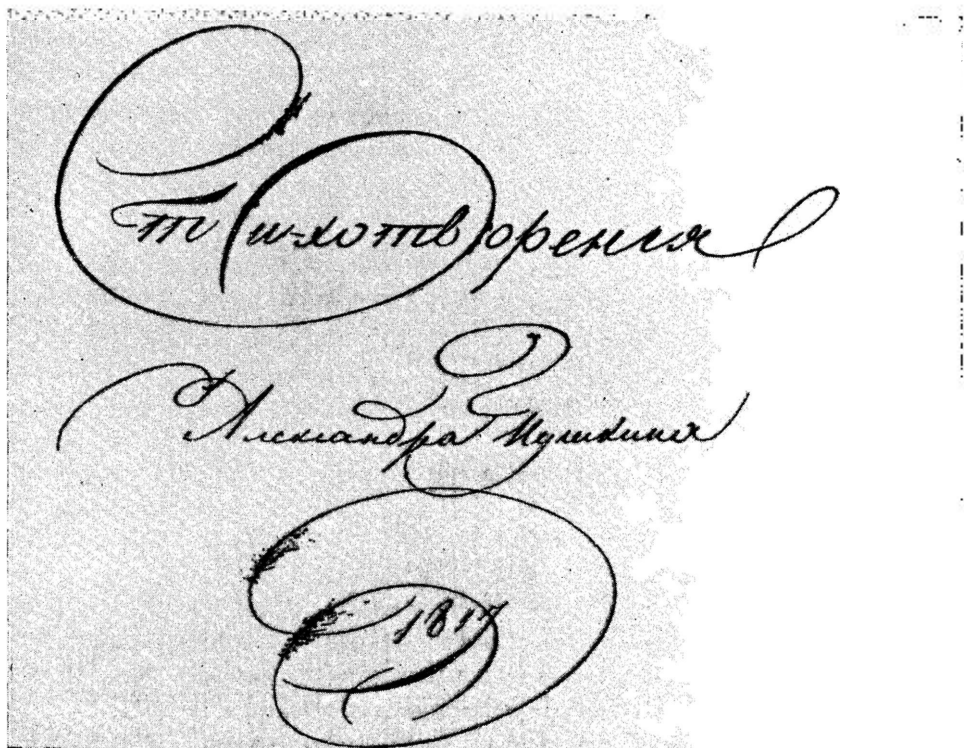 Стихотворенія
Александра Пушкина
1817